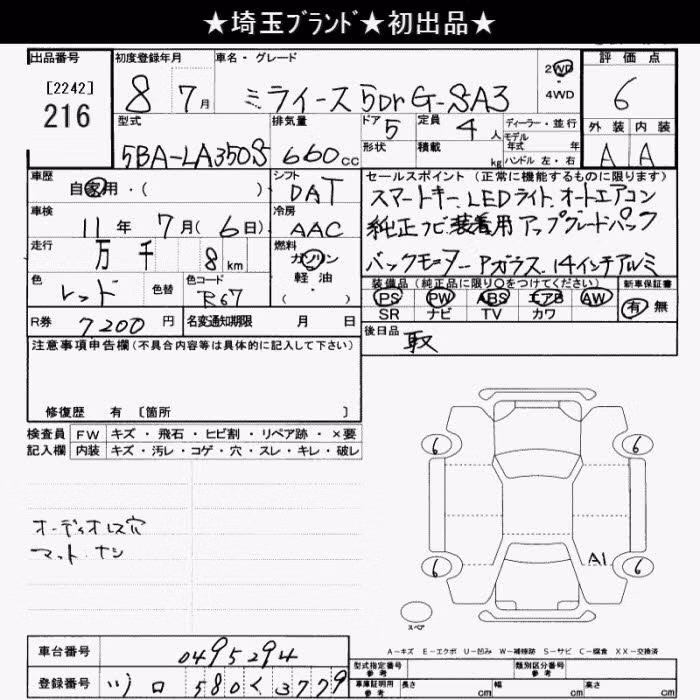 ★埼玉ﾌﾞﾗﾝﾄﾞ★初出品★
出品番号 初度登録年月 車名・グレード 2WD 評価点
[2242] 8 7月 ミライース 5Dr G・SA3 4WD 6
216
型式 排気量 ドア 定員 ディーラー・並行 外装 内装
5BA-LA350S 660cc 5 4人 モデル 年式 年 A A
形状 積載 kg ハンドル 左・右
車歴 シフト セールスポイント (正常に機能するものに限ります)
自家用・( ) DAT スマートキー LEDライト オートエアコン
車検 冷房
11年 7月(6日) AAC 純正ナビ装着用アップグレードパック
走行 燃料
万 千 8km ガソリン バックモニター Pガラス 14インチアルミ
軽油
色 色替 色コード ・( ) 装備品 (純正品に限り○をつけてください) 新車保証書
レッド R67 PS PW ABS エアB AW 有 無
SR ナビ TV カワ
R券 7200円 名変通知期限 月 日 後日品 取
注意事項申告欄(不具合内容等は具体的に記入して下さい)
修復歴 有 [箇所 ]
検査員 FW キズ・飛石・ヒビ割・リペア跡・×要
記入欄 内装 キズ・汚レ・コゲ・穴・スレ・キレ・破レ
6 6
オーディオレス穴
マット ナシ
A1
6 6
スペア
A-キズ E-エクボ U-凹み W-補修跡 S-サビ C-腐食 XX-交換済
車台番号 0495294 型式指定番号 参考 類別区分番号 参考
登録番号 580 く 3779 車庫証明用 参考 長さ cm 幅 cm 高さ cm